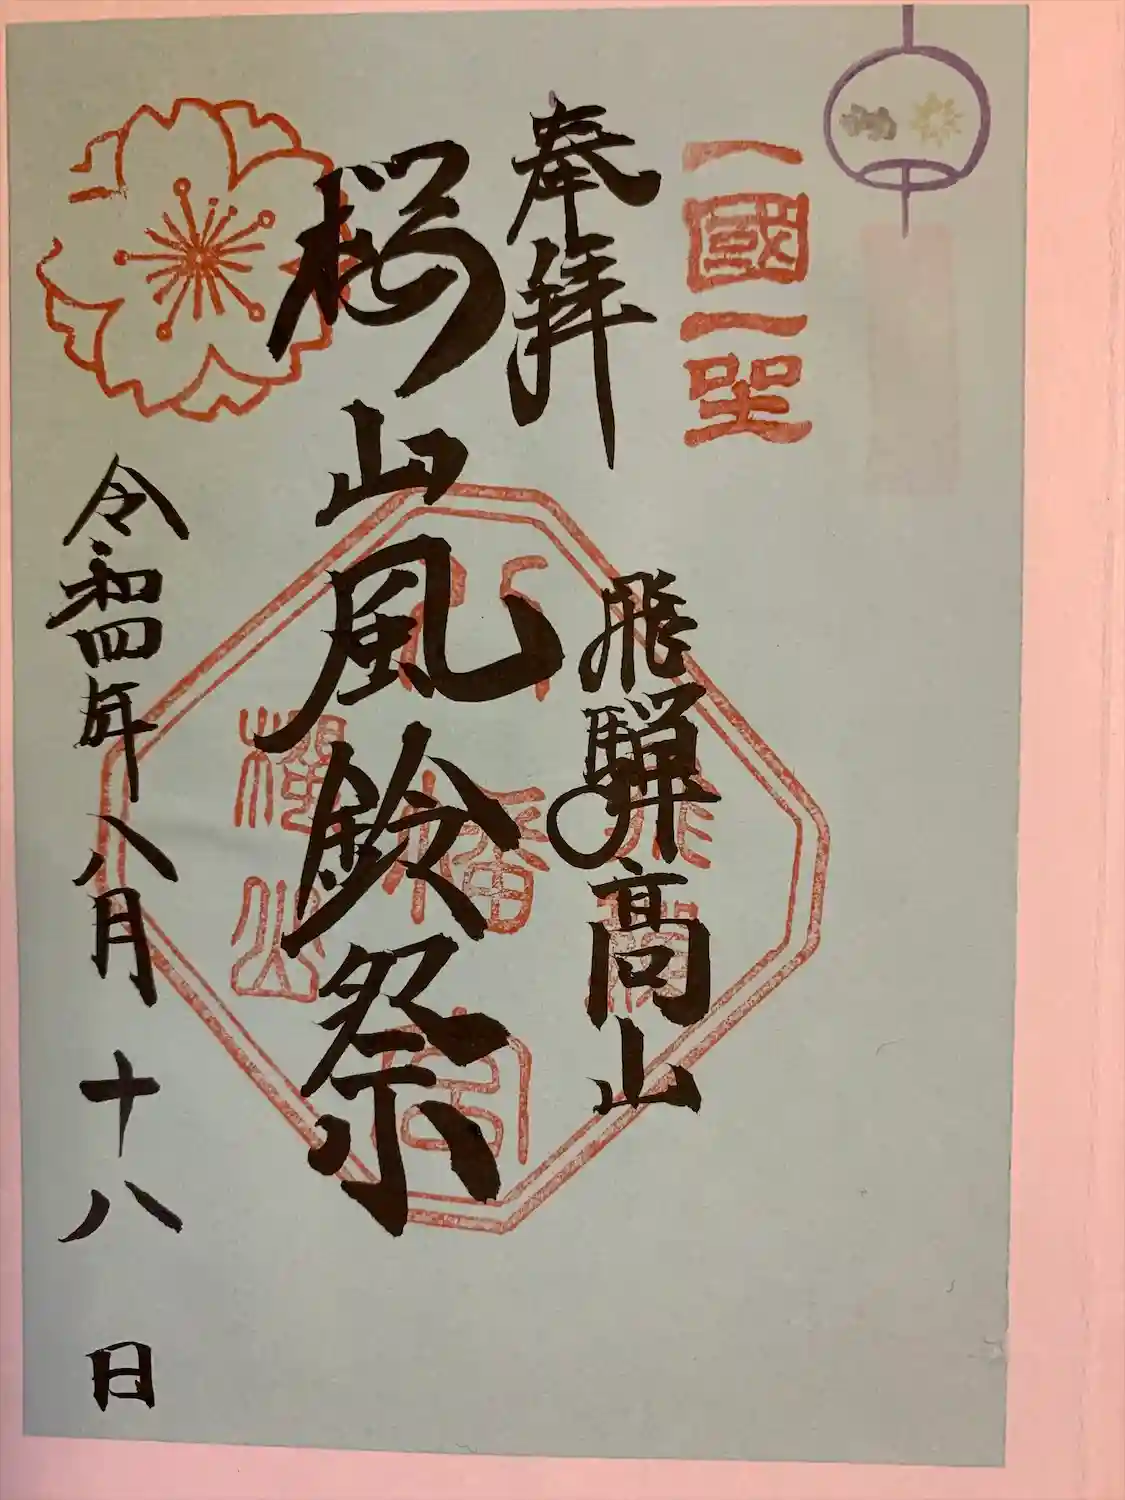 一國一社
奉拜
飛騨高山
桜山風鈴祭
飛騨
八幡宮
櫻山
令和四年八月十八日